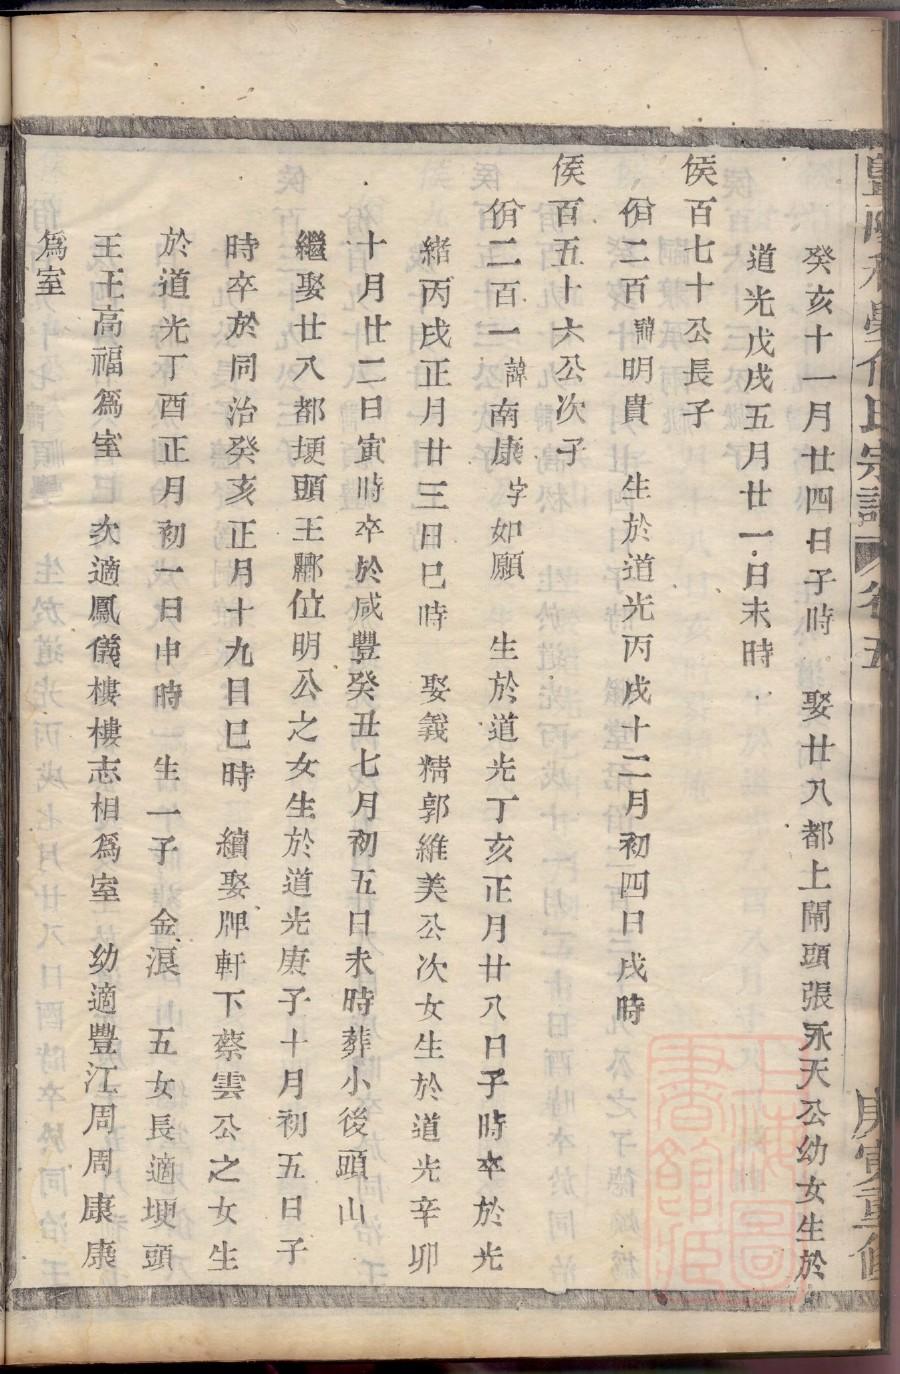 癸亥十一月廿四日子時　娶廿八都上閘頭張永天公幼女生於
道光戊戌五月廿一日未時
侯百七十公長子
佾二百諱明貴　生於道光丙戌十二月初四日戌時
侯百五十六公次子
佾二百一諱南康字如願　生於道光丁亥正月廿八日子時卒於光
緒丙戌正月廿三日巳時　娶義精郭維美公次女生於道光辛卯
十月廿二日寅時卒於咸豐癸丑七月初五日未時葬小後頭山
繼娶廿八都埂頭王酈位明公之女生於道光庚子十月初五日子
時卒於同治癸亥正月十九日巳時　續娶牌軒下蔡雲公之女生
於道光丁酉正月初一日申時　生一子　金浪　五女長適埂頭
王王高福爲室　次適鳳儀樓樓志相爲室　幼適豐江周周康康
爲室
宗譜　卷五
庚寅重修